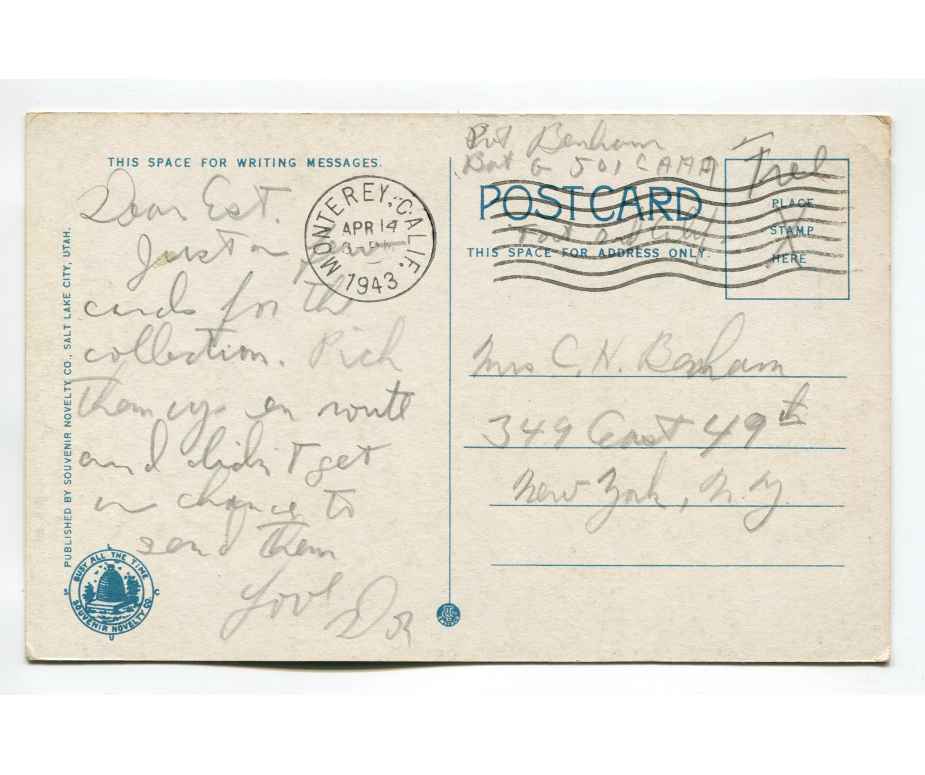 THIS SPACE FOR WRITING MESSAGES.
Dear Est.
Just a
cards for the
collection. Pick
them up en route
and didn't get
a chance to
send them
Love
PUBLISHED BY SOUVENIR NOVELTY CO., SALT LAKE CITY, UTAH.
BUSY ALL THE TIME
SOUVENIR NOVELTY CO.
MONTEREY, CALIF.
APR 14
1943
Pvt Benham
Bat G 501 CAAA
Free
POSTCARD
THIS SPACE FOR ADDRESS ONLY.
PLACE
STAMP
HERE
Mrs C. H. Benham
349 East 49th
New York, N.Y.